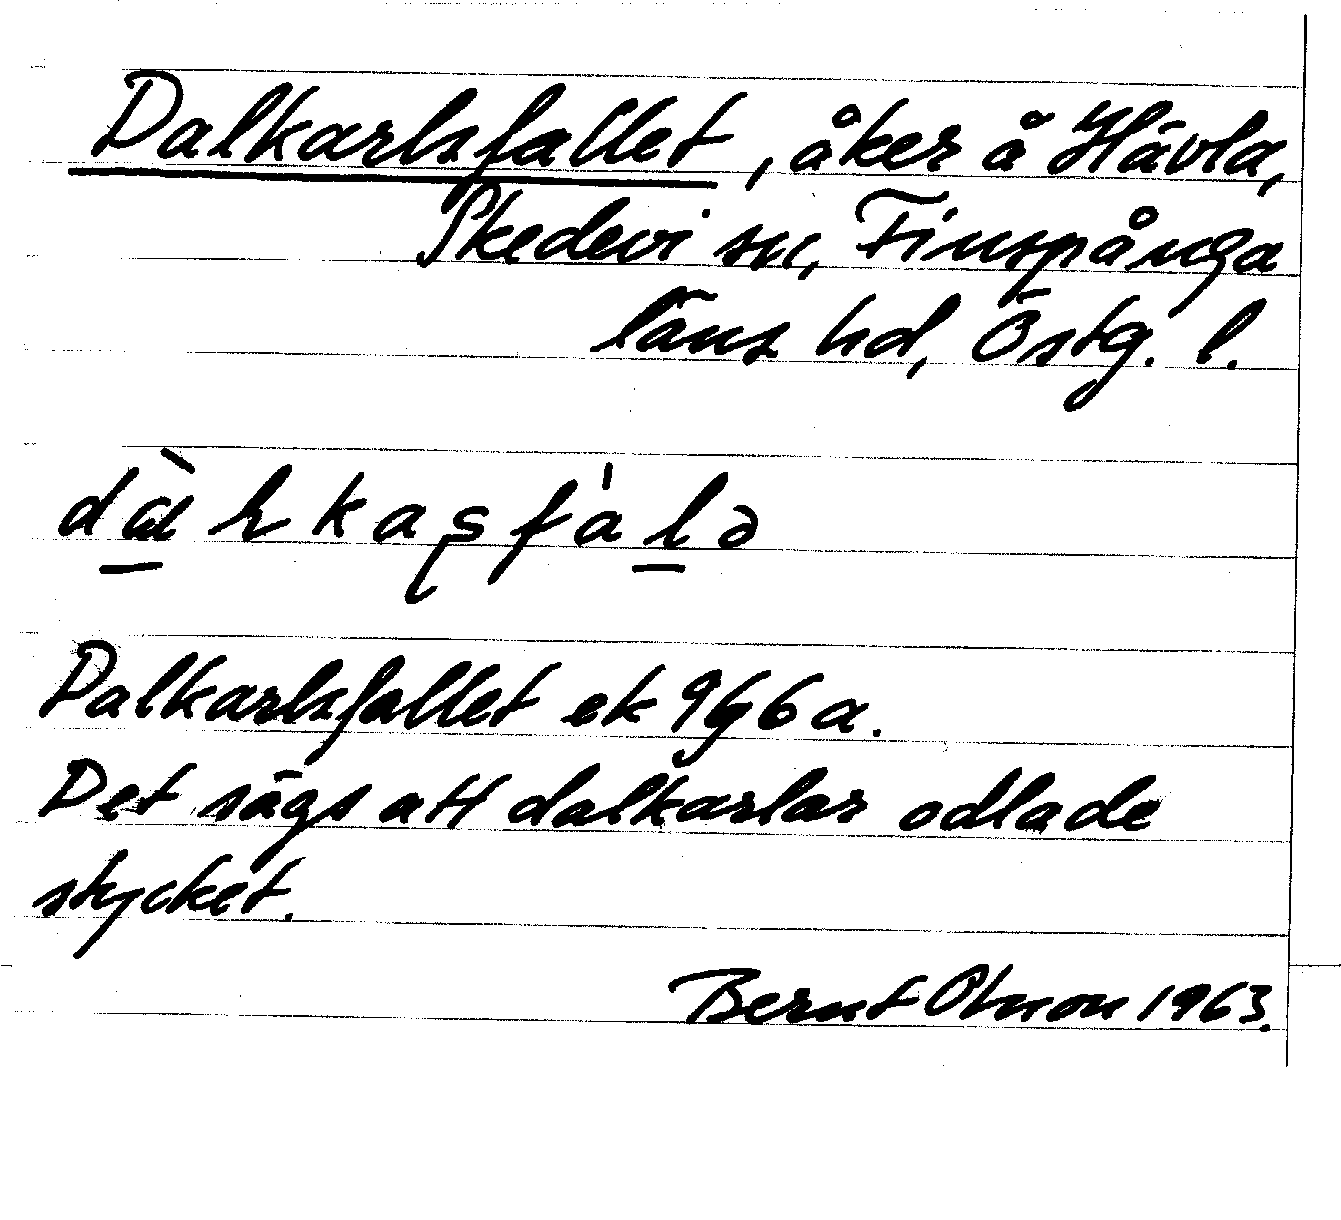 Dalkarlsfallet, åker å Hävla,
Skedevi sn, Finspånga
läns hd, Östg. l.
Dalkarlsfallet ek 9g6a.
Det sägs att dalkarlar odlade
stycket.
Bernt 1963.